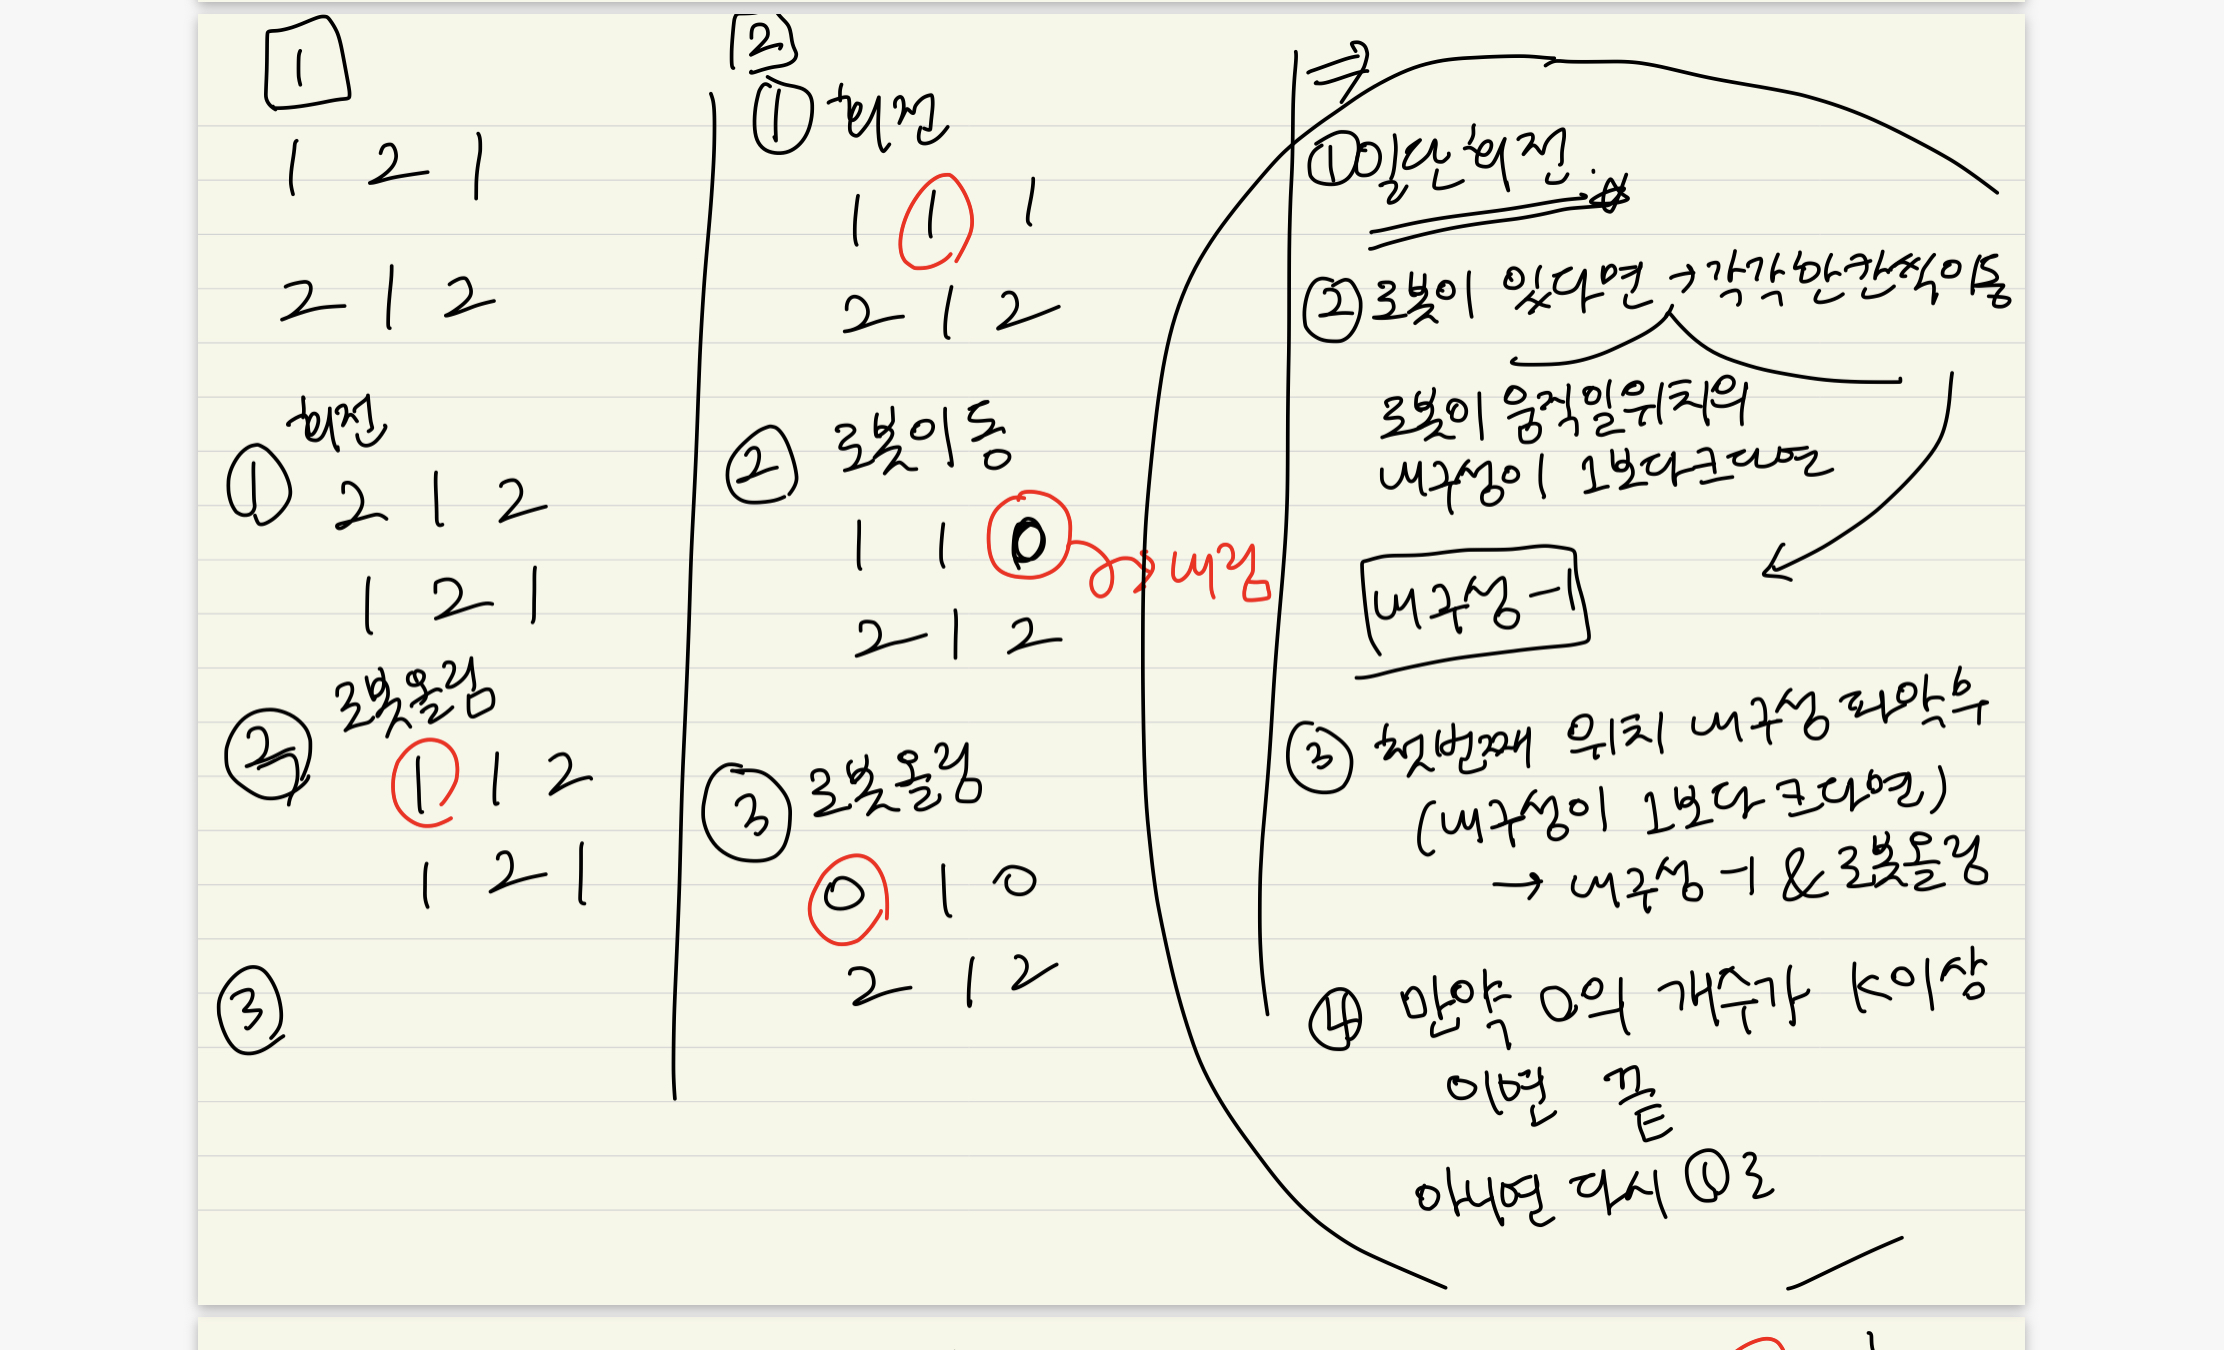 1
1 2 1
2 1 2
회전
① 2 1 2
1 2 1
로봇올림
② 1 1 2
1 2 1
③
2
① 회전
1 1 1
2 1 2
② 로봇이동
1 1 0 → 내림
2 1 2
③ 로봇올림
0 1 0
2 1 2
⇒
① 일단 회전.☆
② 로봇이 있다면 → 각각 한칸씩 이동
로봇이 움직일 위치의
내구성이 1보다 크다면
내구성 -1
③ 첫번째 위치 내구성 파악 후
(내구성이 1보다 크다면)
→ 내구성 -1 & 로봇올림
④ 만약 0의 개수가 K이상
이면 끝
아니면 다시 ①로